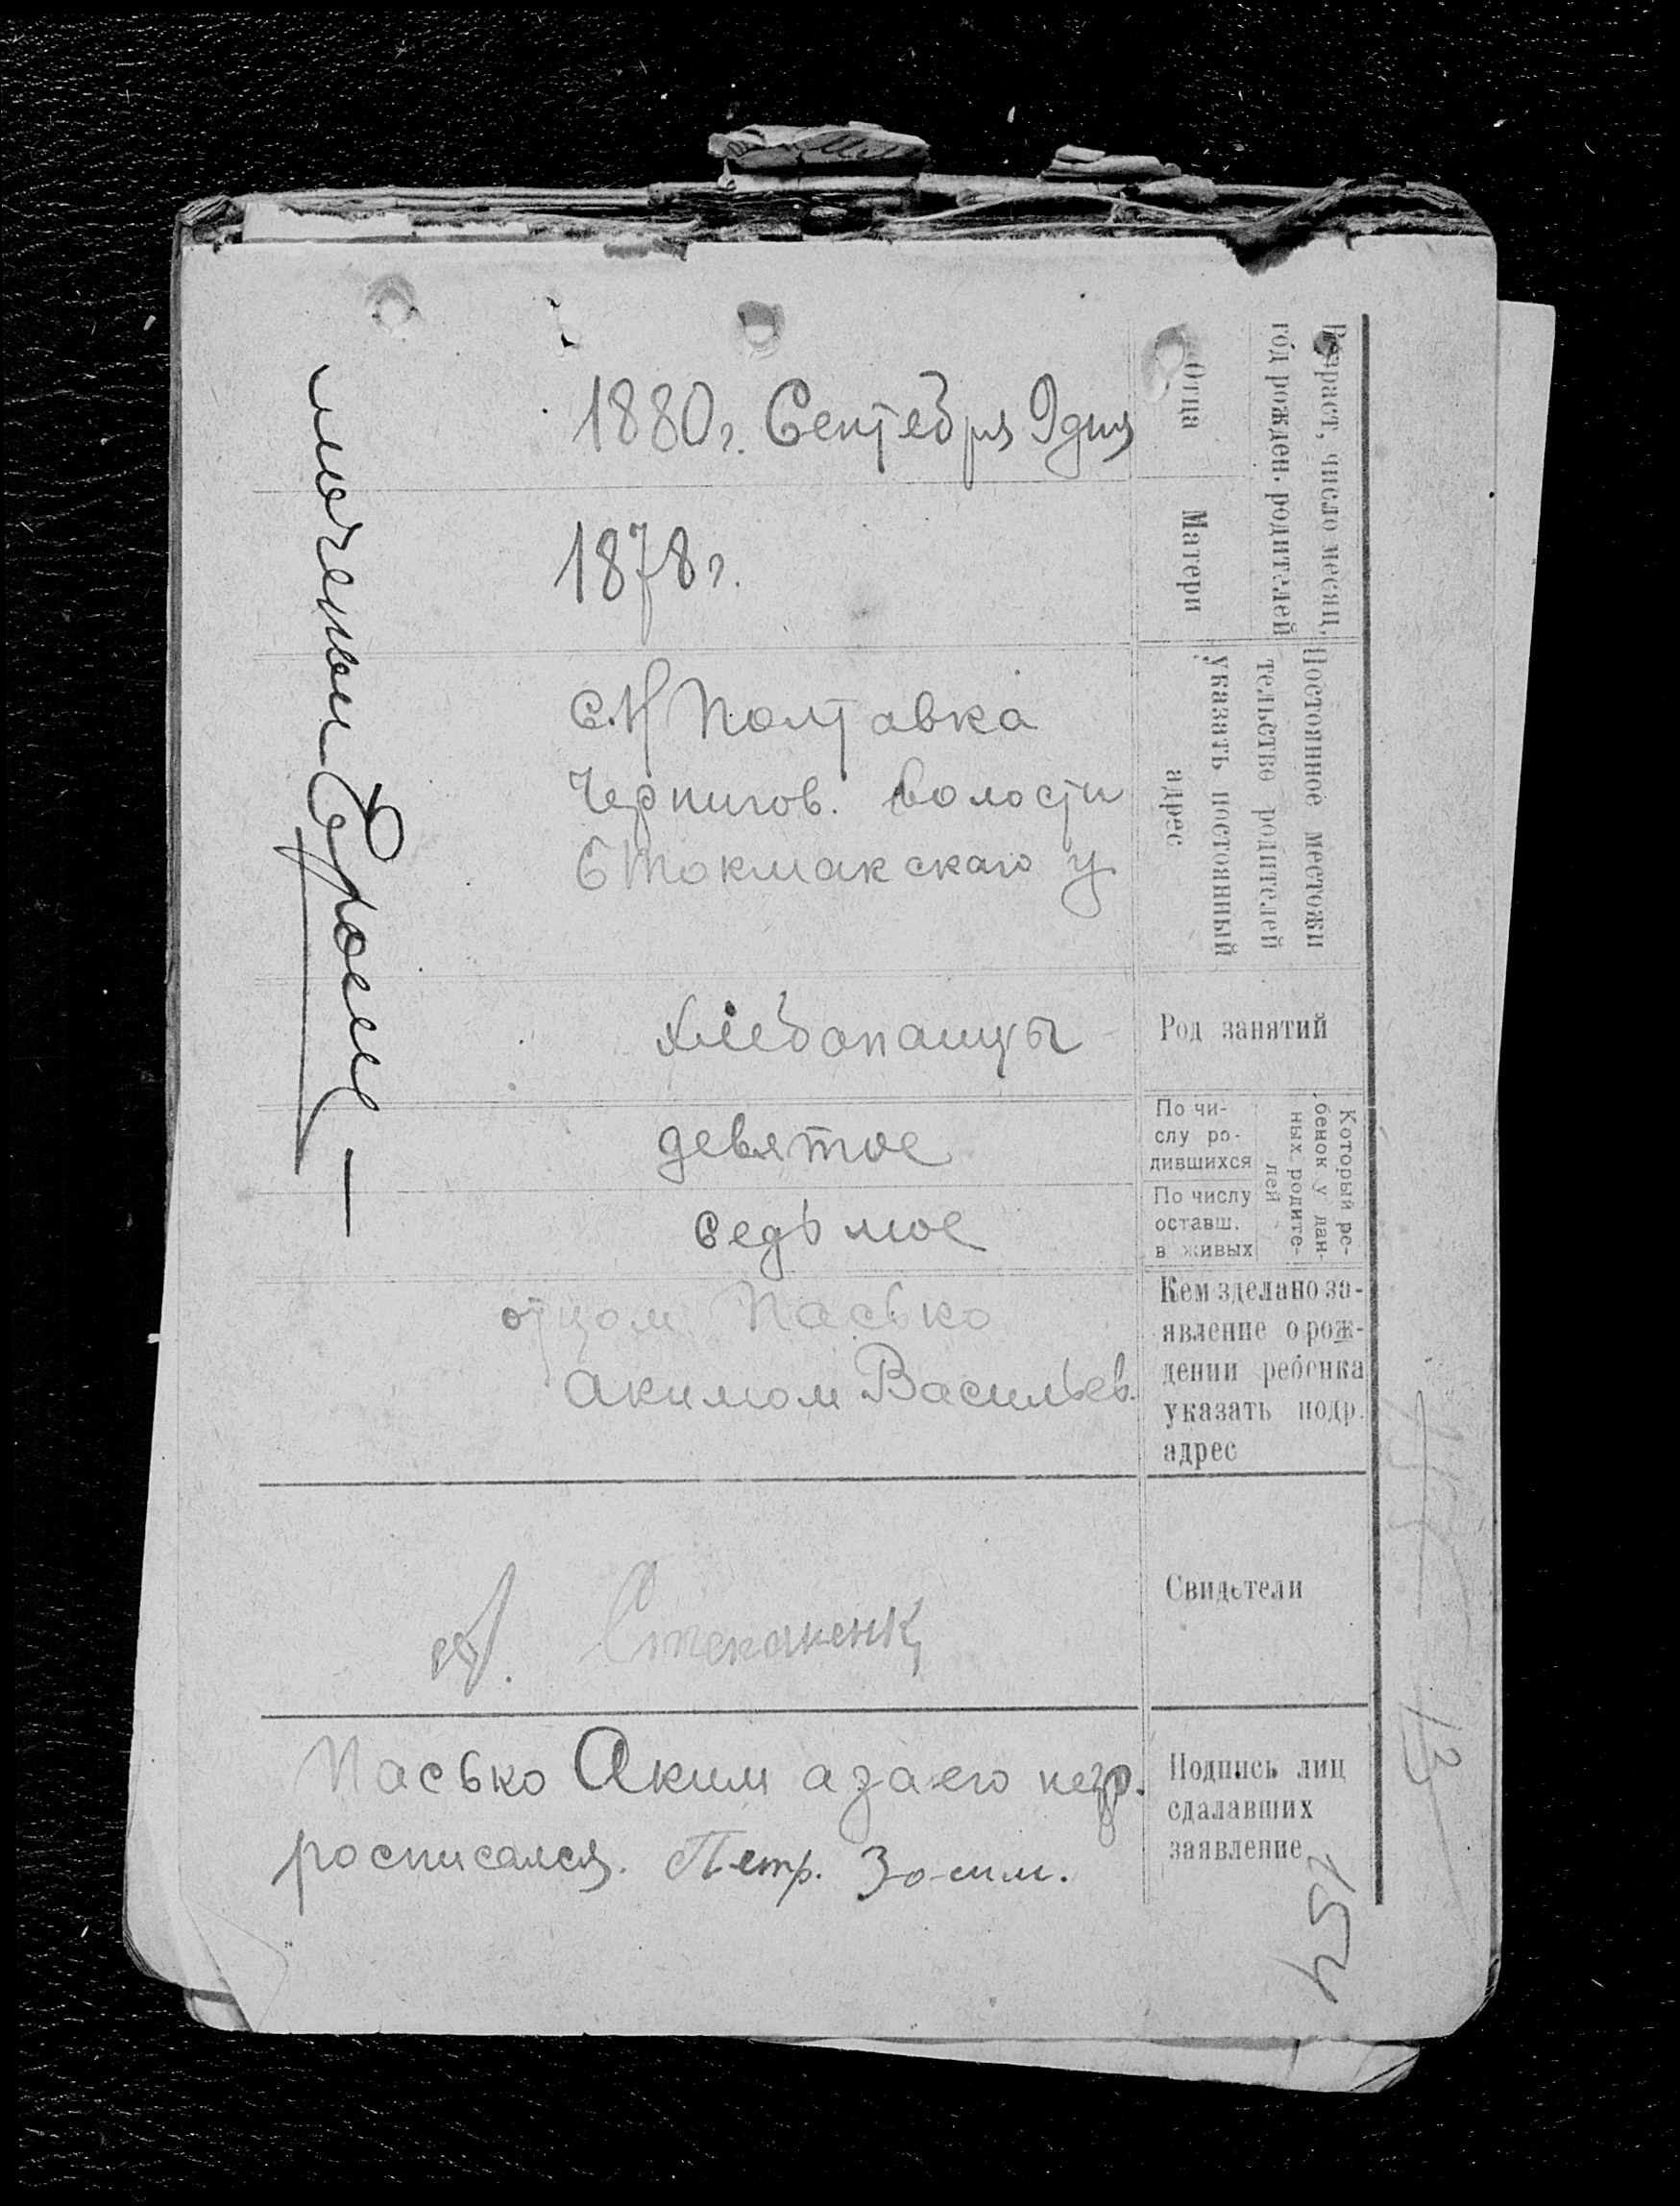 Возраст, число месяц,
год рожден. родителей
Отца
1880 г. Сентебря 9 дня
Матери
1878 г.
Постоянное местожи
тельство родителей
указать постоянный
адрес
с. Н Полтавка
Чернигов. волости
БТокмакскаго у
Род занятий
хлебопашцы
Который ре-
бенок у дан-
ных родите-
лей
По чи-
слу ро-
дившихся
девятое
По числу
оставш.
в живых
седьмое
Кем зделано за-
явление о рож-
дении ребенка
указать подр.
адрес
отцом Пасько
Акимом Васильев.
Свидетели
Подпись лиц
сдалавших
заявление
Пасько Аким а за его негр.
росписался. Петр.
254
13